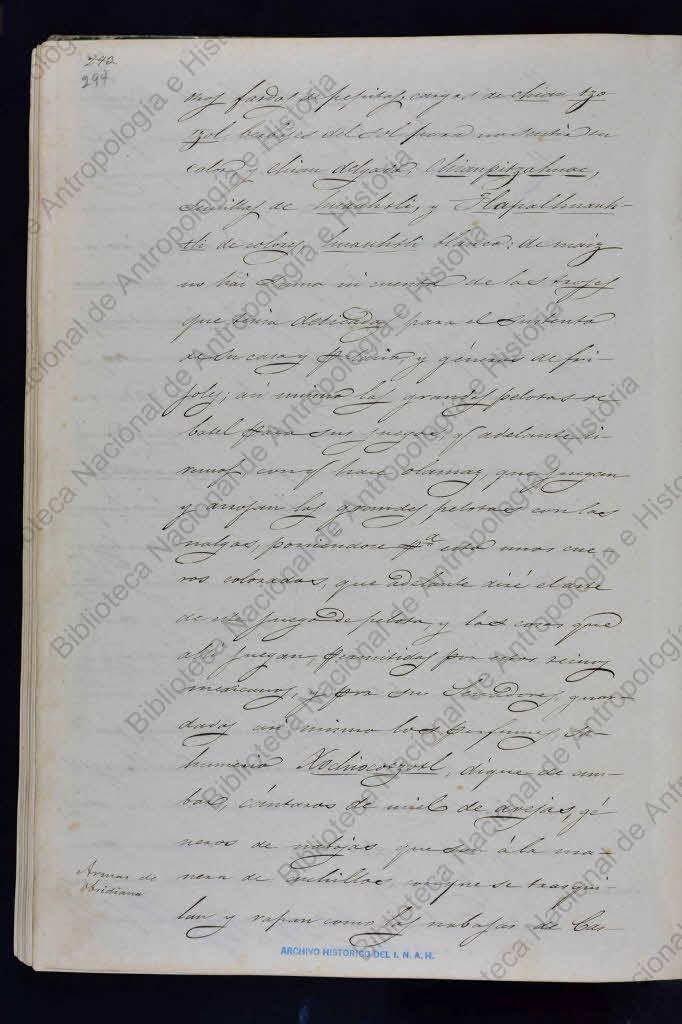 292
294
nos fardos de pepitas, cargas de chian tzo
tzol heroyes del sol para no sentir su
calor y chian delgada, Chianpitzahuac,
semillas de huauhtli, y Tlapalhuauh-
tli de colores, huauhtli blanco: de maiz
no hai suma ni cuenta de las trojes
que tenia dedicadas para el sustento
de su casa y familia, y géneros de fri-
joles; asi mismo las grandes pelotas de
batel para sus juegos, q adelante di-
remos, con q hace olamaz, que juegan
y arrojan las grandes pelotas con las
nalgas, poniendose pa esto unos cue-
ros colorados, que adelante diré el arte
de este juego de pelota, y las cosas que
alli juegan, permitidas por estos reinos
mexicanos, y por sus Senadores, guar-
dadas asi mismo los perfumes, sa-
humerio Xochiocotzotl, dique de am-
bar, cántaros de miel de avejas, gé
neros de nabajas que son á la ma-
nera de cuchillos, conque se trasqui-
lan y rapan como las nabajas de Cas-
Armas de
Obsidiana
ARCHIVO HISTORICO DEL I. N. A. H.
Biblioteca Nacional de Antropología e Historia